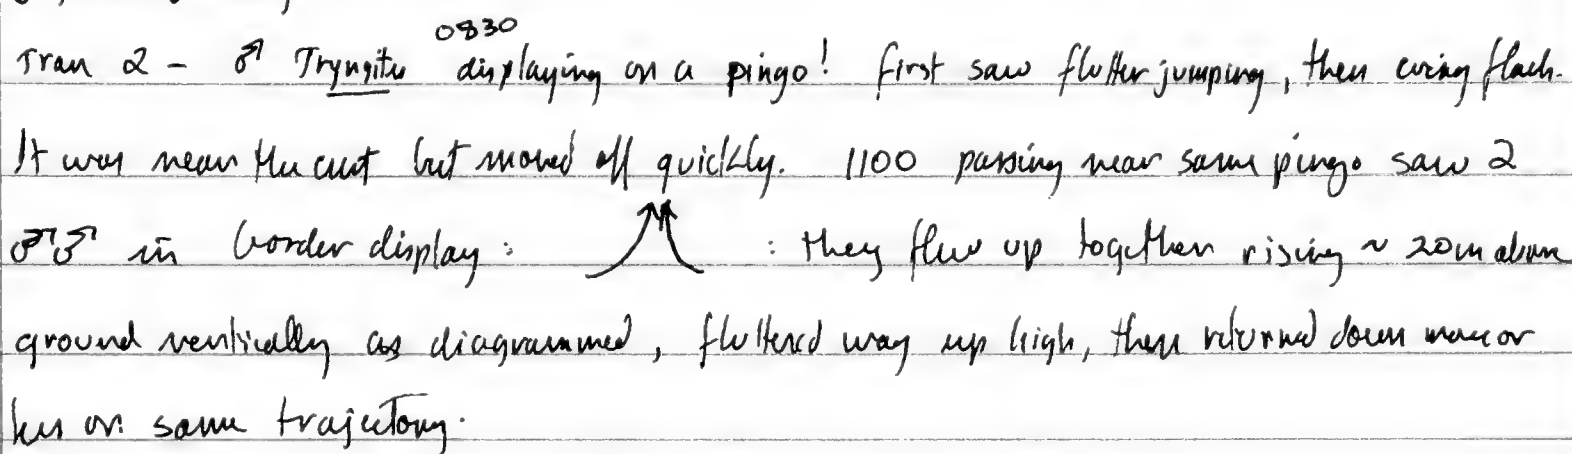 0830
Tran 2 - ♂ Tryngites displaying on a pingo! First saw flutter jumping, then wing flash.
It was near the cust but moved off quickly. 1100 passing near same pingo saw 2
♂♂ in border display: : they flew up together rising ~ 20m above
ground vertically as diagrammed, fluttered way up high, then returned down more or
less on same trajectory.